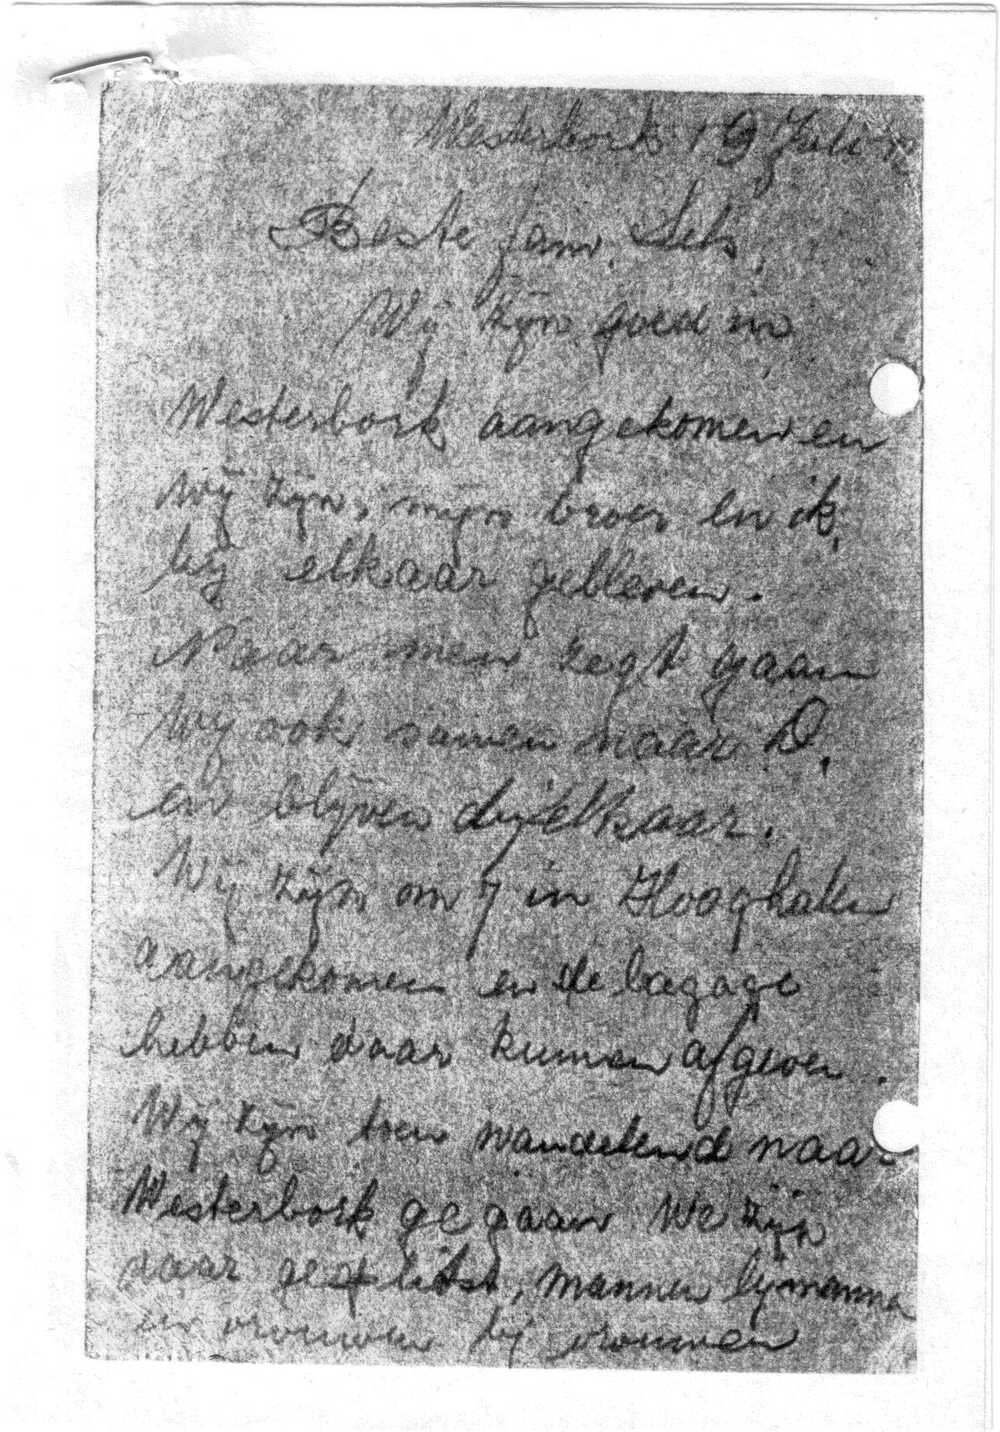 Westerbork 19 Juli
Beste fam.
Wij zijn goed in
Westerbork aangekomen en
wij zijn, mijn broer en ik,
bij elkaar gebleven.
Naar men zegt gaan
wij ook samen naar D.
en blijven bij elkaar.
Wij zijn om 7 in Hooghalen
aangekomen en de bagage
hebben daar kunnen afgeven.
Wij zijn toen wandelend naar
Westerbork gegaan. We zijn
daar gesplitst, mannen bij mannen
en vrouwen bij vrouwen